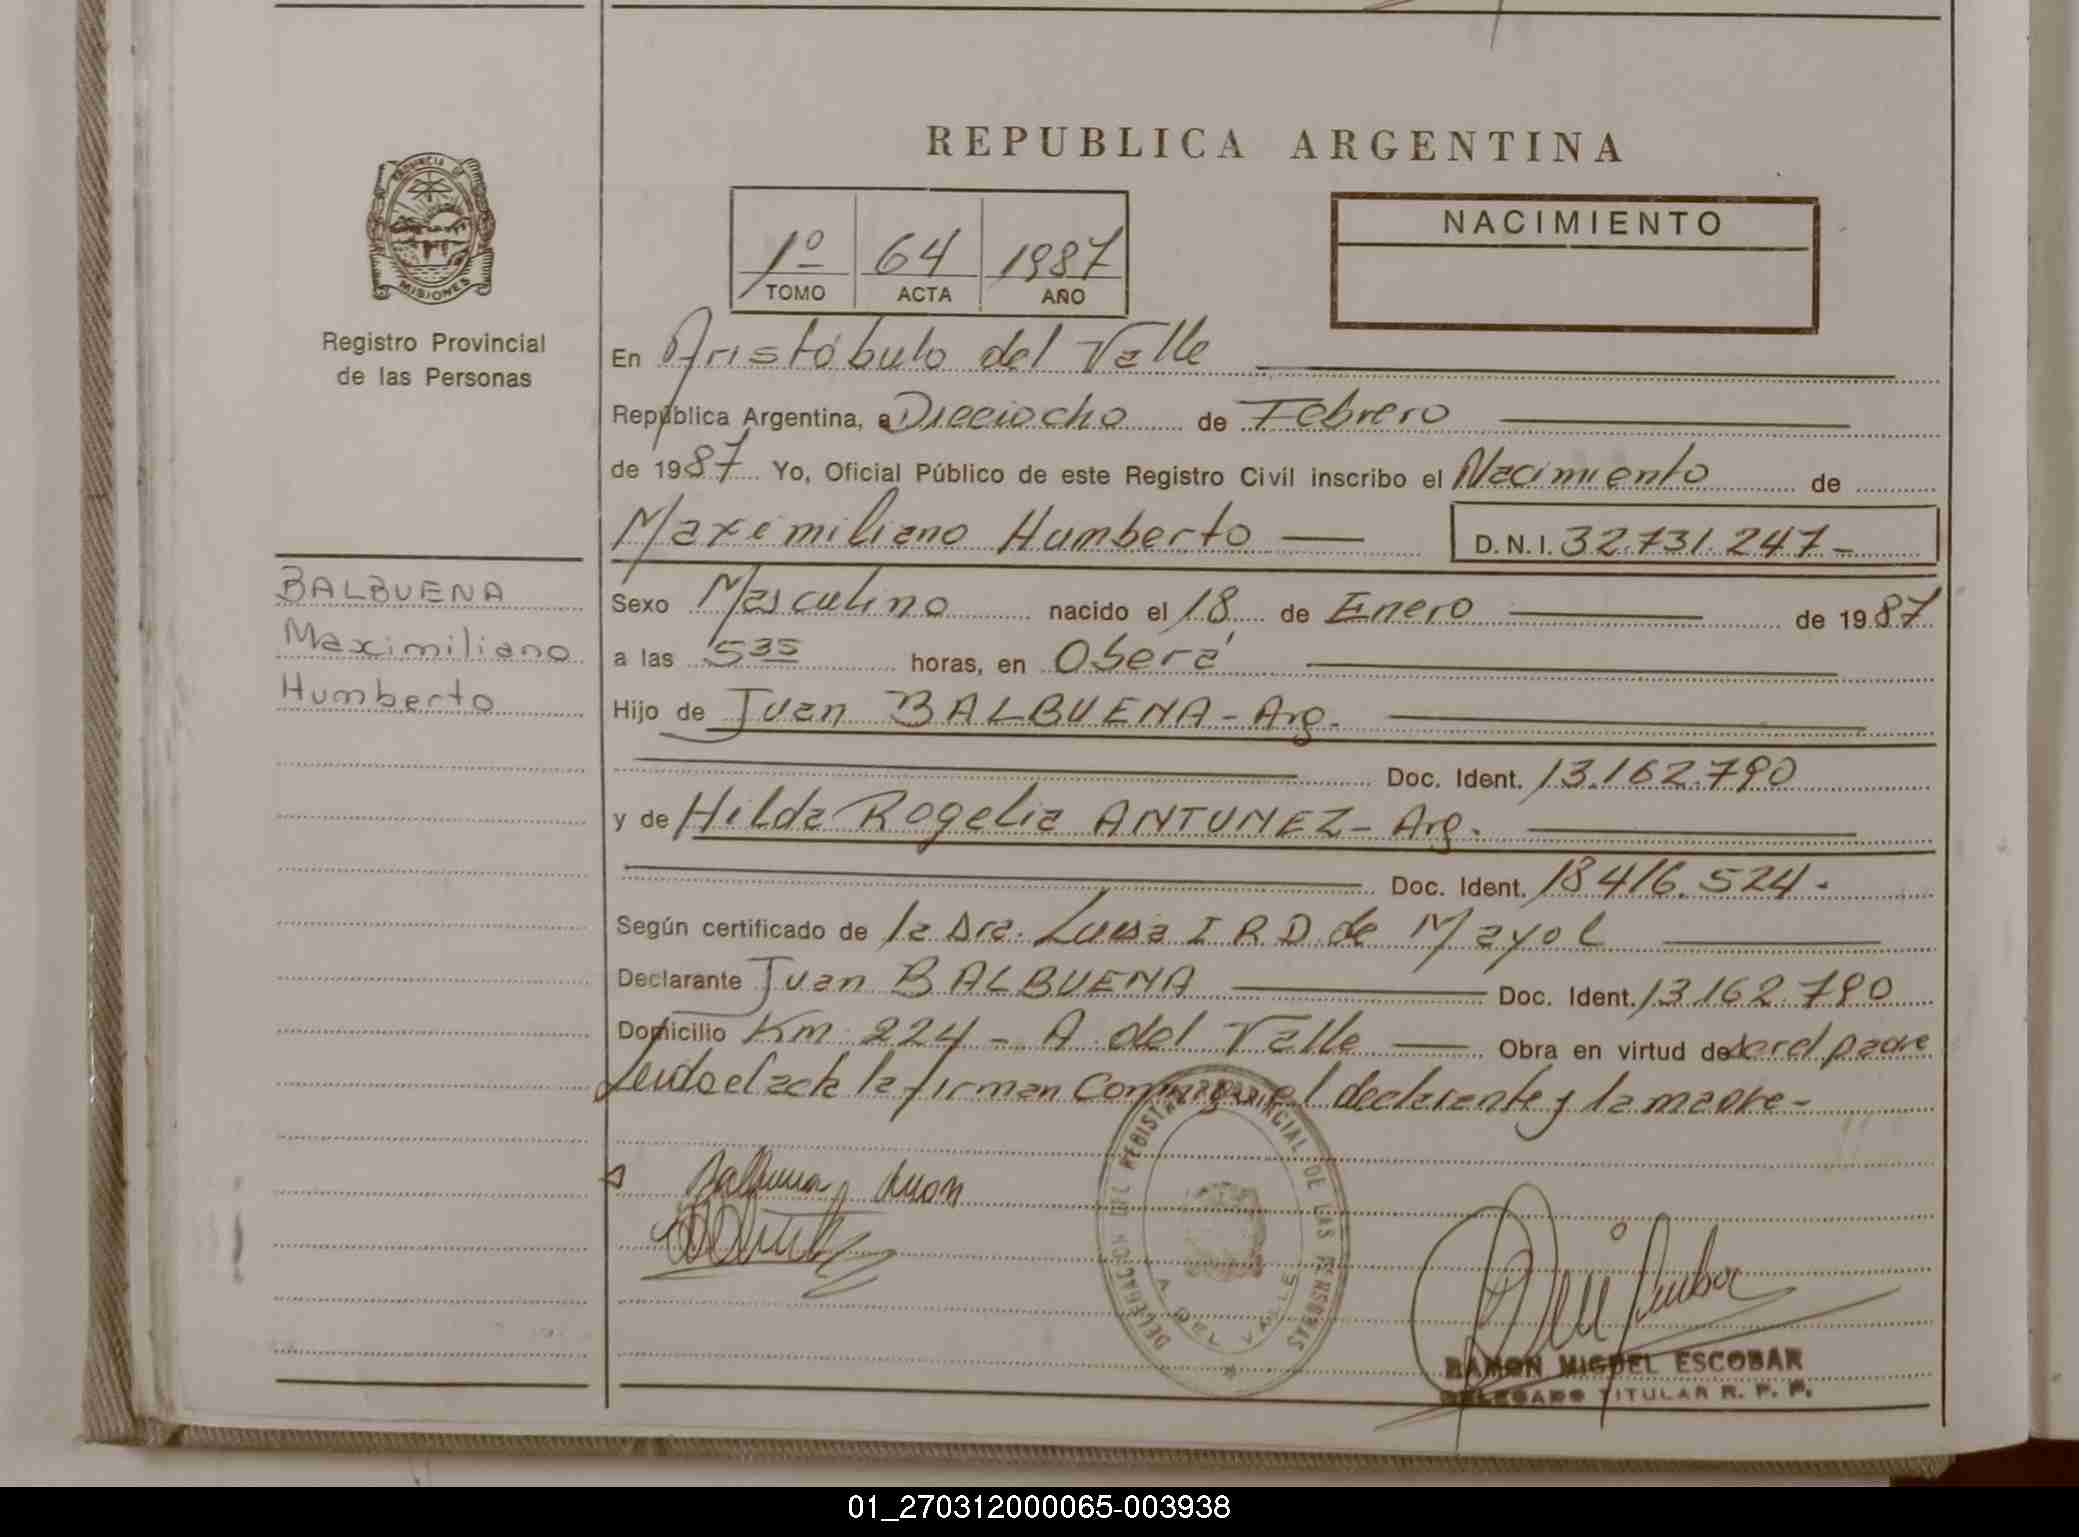 REPUBLICA ARGENTINA
PROVINCIA DE
MISIONES
Registro Provincial
de las Personas
1º 64 1987
TOMO ACTA AÑO
NACIMIENTO
En Aristóbulo del Valle
República Argentina, a Dieciocho de Febrero
de 1987 Yo, Oficial Público de este Registro Civil inscribo el Nacimiento de
Maximiliano Humberto D.N.I. 32.731.247-
BALBUENA
Maximiliano
Humberto
Sexo Masculino nacido el 18 de Enero de 1987
a las 5 35 horas, en Oberá
Hijo de Juan BALBUENA - Arg.
Doc. Ident. 13.162.790
y de Hilda Rogelia ANTUNEZ - Arg.
Doc. Ident. 18416.524.
Según certificado de la Dra. Luisa I R D de Mayol
Declarante Juan BALBUENA Doc. Ident. 13162.790
Domicilio Km 224 - A del Valle Obra en virtud de ser el padre
Leido el acta la firman conmigo el declarante y la madre-
Balbuena Juan
DELEGACION DEL REGISTRO PROVINCIAL DE LAS PERSONAS
A. DEL VALLE
RAMON MIGUEL ESCOBAR
DELEGADO TITULAR R. P. P.
01_270312000065-003938